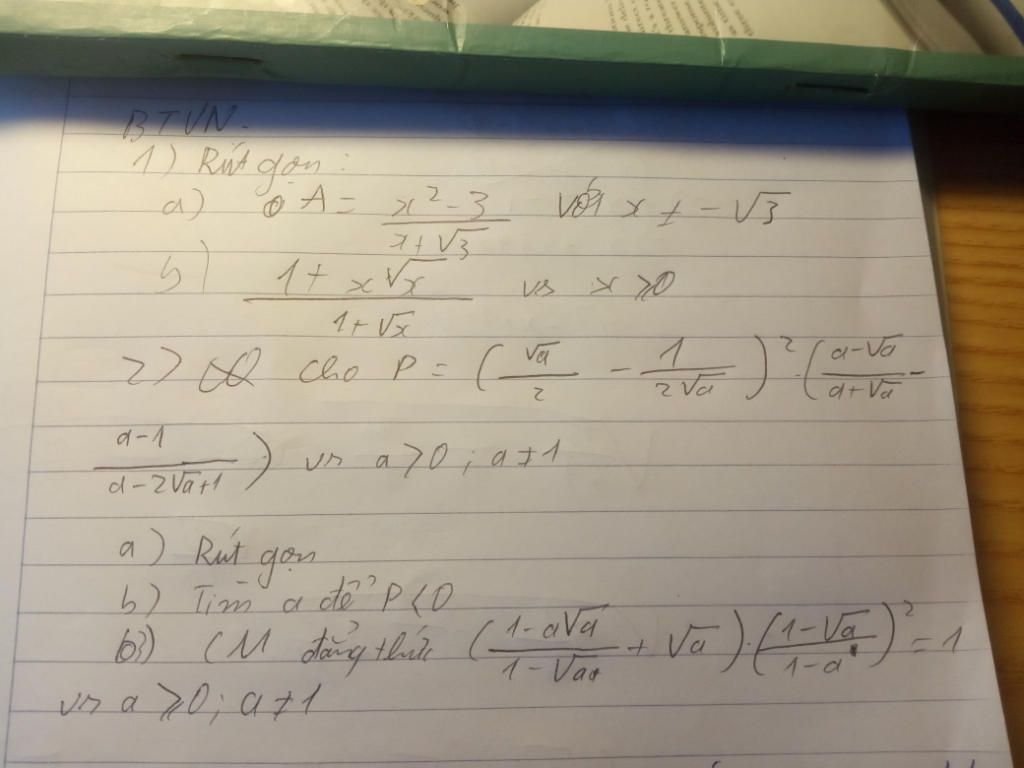 BTVN.
1) Rút gọn:
a) A = \frac{x^2-3}{x+\sqrt{3}} với x ≠ -\sqrt{3}
b) \frac{1+x\sqrt{x}}{1+\sqrt{x}} vs x ≥ 0
2) cho P = (\frac{\sqrt{a}}{2} - \frac{1}{2\sqrt{a}})^2 . (\frac{a-\sqrt{a}}{a+\sqrt{a}} -
\frac{a-1}{a-2\sqrt{a}+1}) vs a > 0 ; a ≠ 1
a) Rút gọn
b) Tìm a để P < 0
3) CM đẳng thức (\frac{1-a\sqrt{a}}{1-\sqrt{a}} + \sqrt{a}) . (\frac{1-\sqrt{a}}{1-a})^2 = 1
vs a ≥ 0 ; a ≠ 1